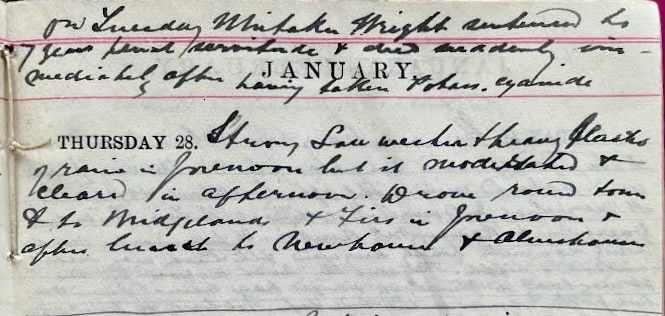 On Tuesday Whitaker Wright sentenced to
7 years penal servitude & died suddenly im-
mediately after having taken Potass. cyanide
JANUARY
THURSDAY 28. Strong S.W. & heavy
of rain in forenoon but it moderated &
cleared in afternoon. Drove round town
& to & Firs in forenoon &
after lunch to Newhouse & Almshouses